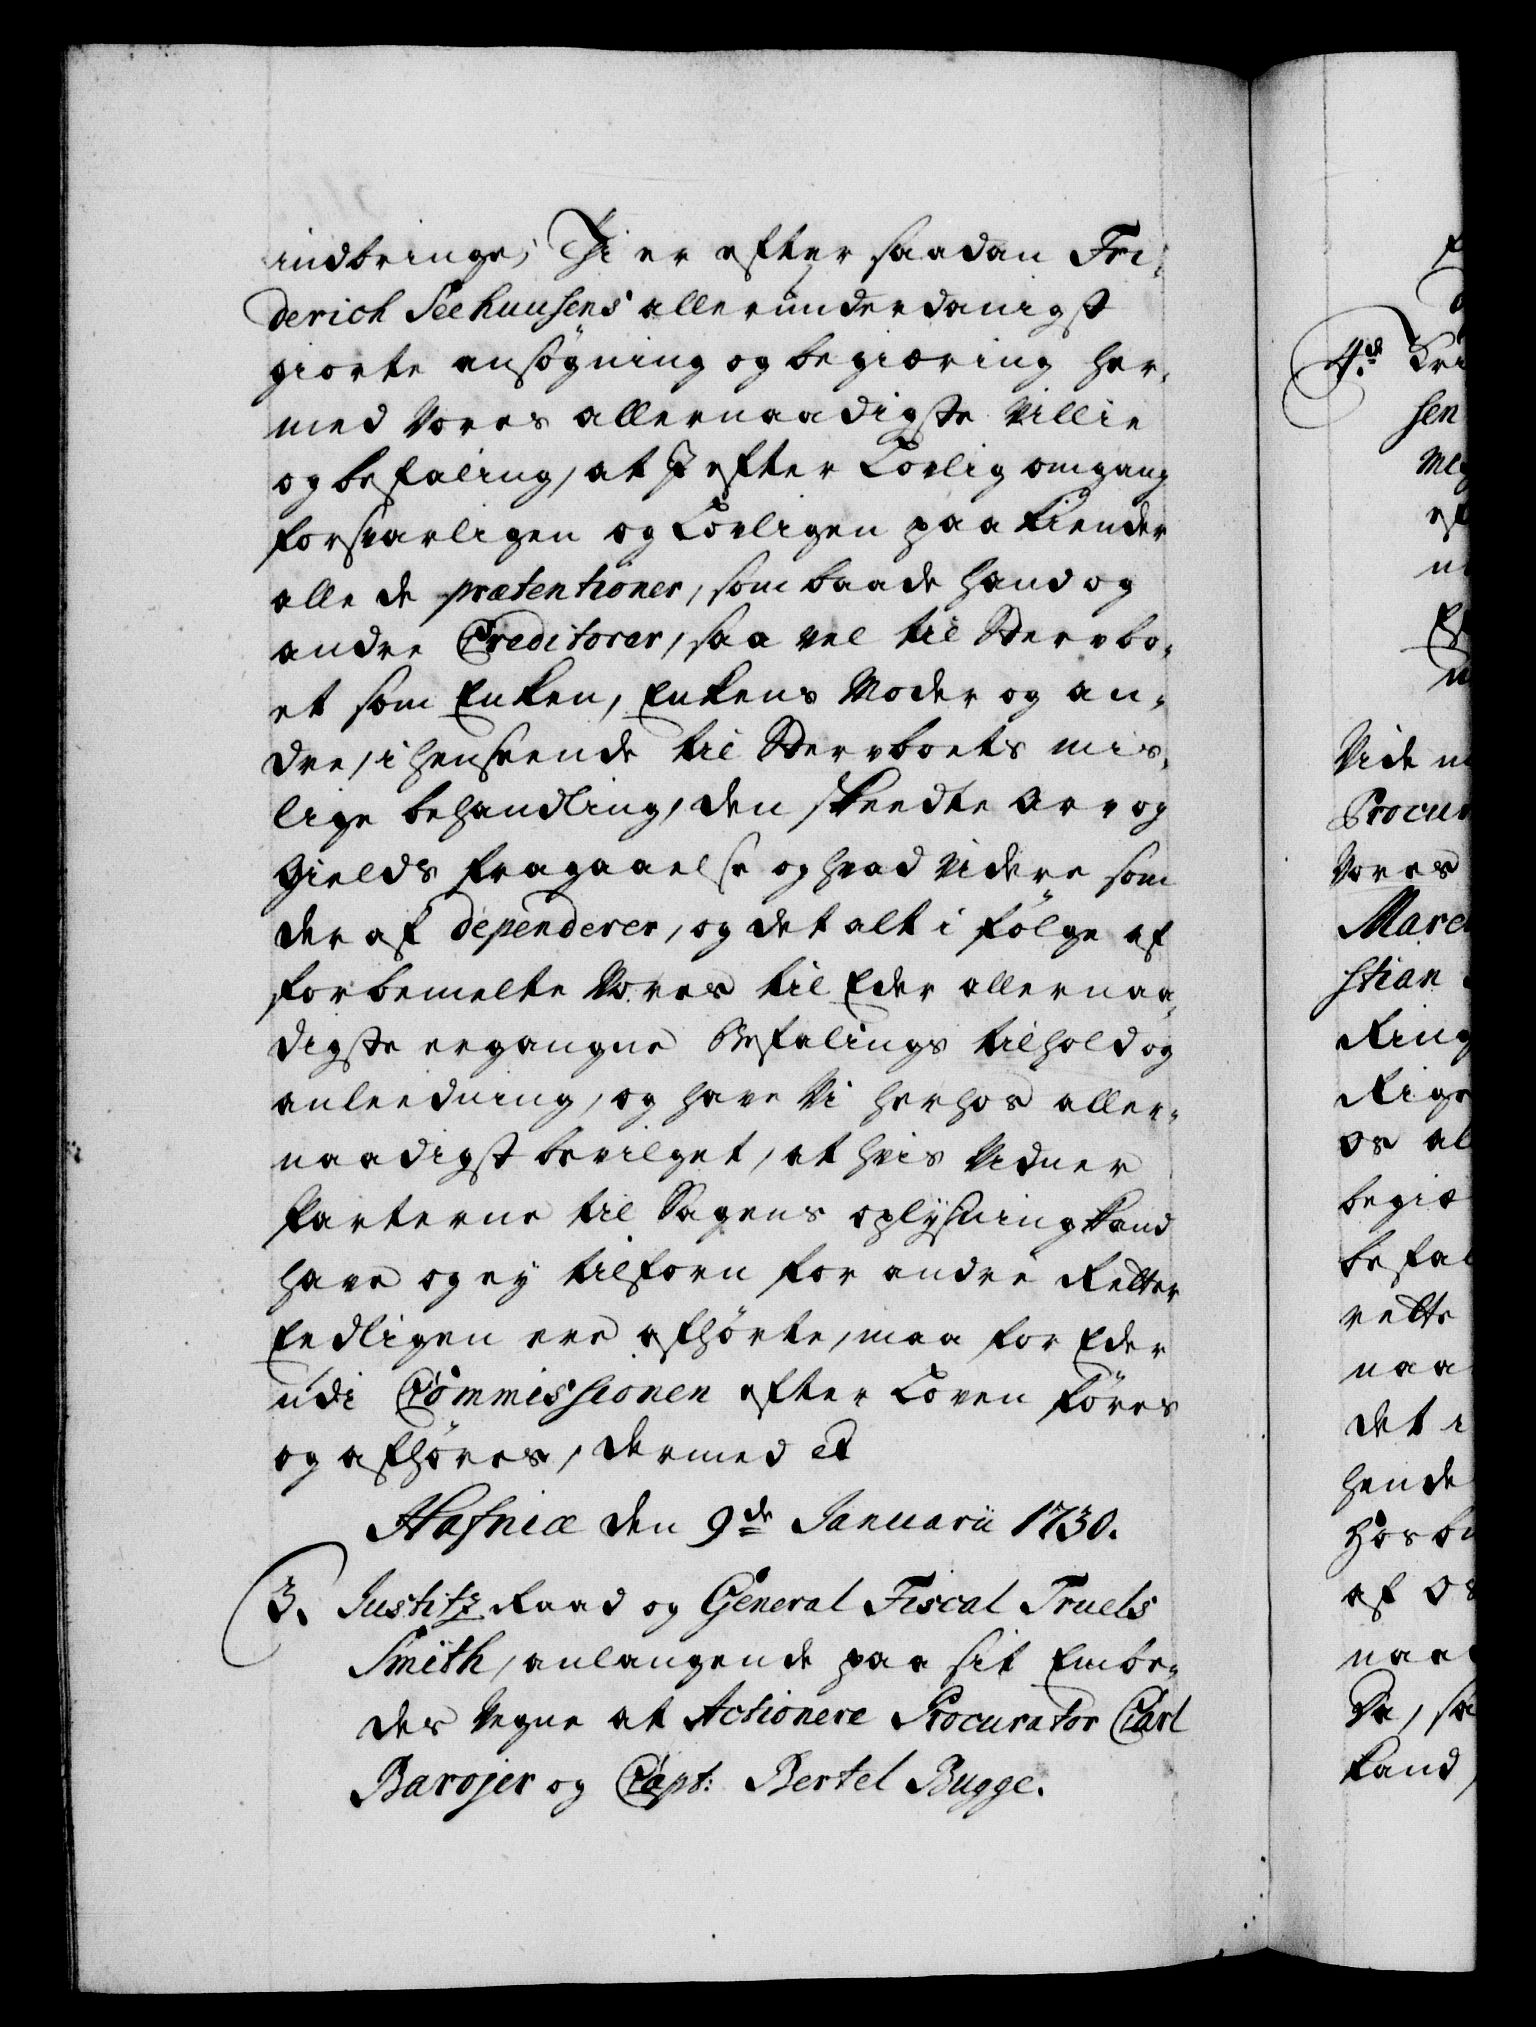 indbringe; Thi er efter saadan Fri-
derich Seehuusens allerunderdanigst
giorte ansøgning og begiæring her-
med Vores allernaadigste Villie
og befaling, at I efter Lovlig omgang
forsvarligen og Lovligen paakiender
alle de prætentioner, som baade hand og
andre Creditorer, saa vel til Stervbo-
et som Enken, Enkens Moder og an-
dre, i henseende til Stervboets mis-
lige behandling, den skeedte Arv og
Gields fragaaelse og hvad videre som
der af dependerer, og det alt i følge af
forbemelte Vores til Eder allernaa-
digste ergangne Befalings tilhold og
anleedning, og have Vi herhos aller-
naadigst bevilget, at hvis Vidner
Parterne til Sagens oplysning kand
have og ey tilforn for andre Retter
Eedligen ere afhørte, maa for Eder
udi Commissionen efter Loven føres
og afhøres, dermed et
Hafniæ den 9de Januarii 1730.
3. Justitz Raad og General Fiscal Truels
Smith, anlangende paa sit Embe-
des Vegne at Actionere Procurator Carl
Barojer og Capt: Bertel Bugge.
4de Kri
sen
Vide
Procur
Vores
Marc
stian
Ring
Rige
Os al
begiæ
befal
rette
naa
det i
hende
hos b
af Os
naa
Da, sa
kand,